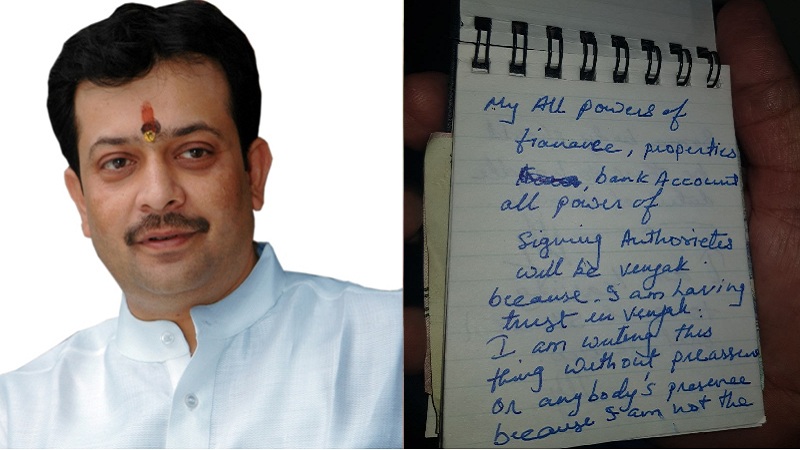 My All powers of
fianance, properties
, bank Account
all power of
Signing Authorietes
will be vinyak
because. I am having
trust in vinyak.
I am writing this
thing without preassure
or anybody's presence
because I am not the